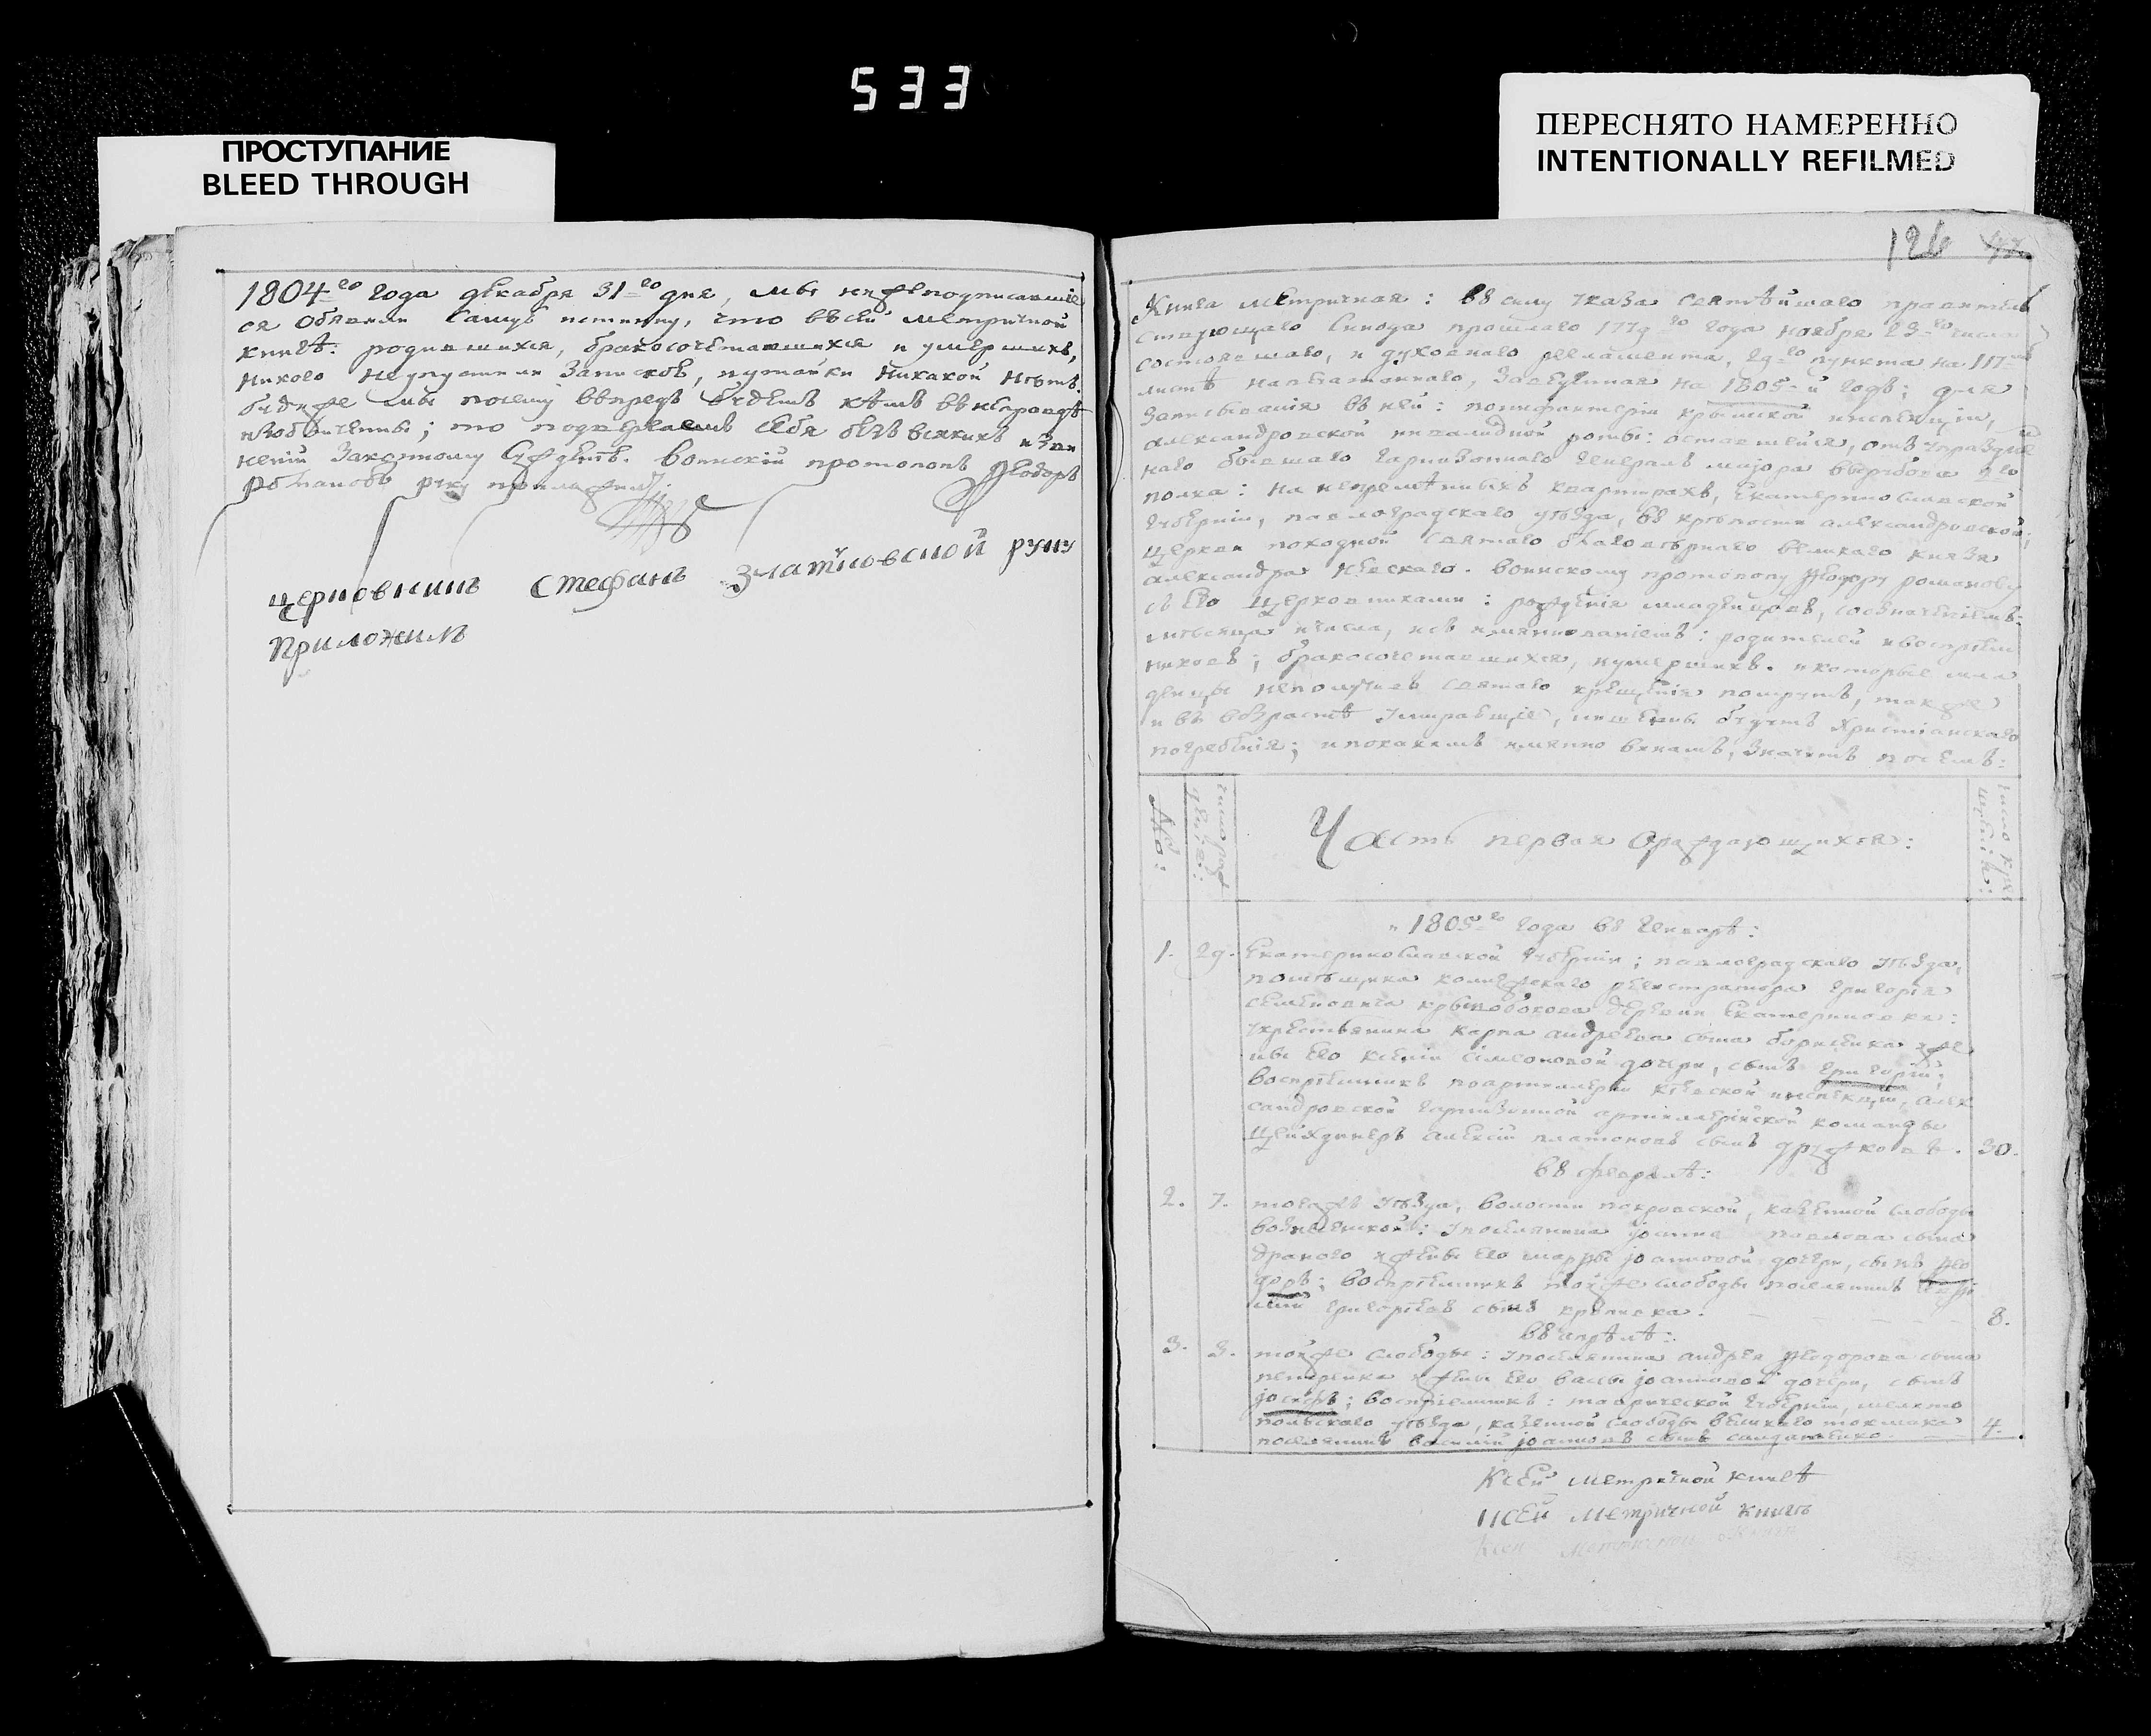 533
ПРОСТУПАНИЕ
BLEED THROUGH
ПЕРЕСНЯТО НАМЕРЕННО
INTENTIONALLY REFILMED
1804-го года декабря 31-го дня, мы нижеподписавшие
ся объявили самую истинну, что въ сей метричной
книгѣ: родившихся, бракосочетавшихся и умершихъ,
никого неупустили записковъ, и утайки никакой нѣтъ.
будеже мы почему впредь будемъ кѣмъ въ неправдѣ
изобличенны; то подвергаемъ себя безъ всякихъ изви
неній законному сужденію. Воинскій протопопъ Ѳеодоръ
Романовъ руку приложилъ
церковникъ Стефанъ Златковской руку
приложилъ
126
Книга метричная: въ силу указа святѣйшаго правитель
ствующаго Синода прошлаго 1779-го года ноября 29-го числа
состоявшаго, и духовнаго регламента, 29-го пункта на 117-мъ
листѣ напечатаннаго, заведенная на 1805-й годъ; для
записыванія въ ней: по инфантеріи крымской инспекціи,
александровской инвалидной роты: оставшейся, отъ упраздне
наго бывшаго гарнизоннаго генералъ маіора 2го
полка: на непремѣнныхъ квартирахъ, Екатеринославской
губерніи, павлоградскаго уѣзда, въ крѣпости александровской;
церкви походной святаго благовѣрнаго великаго князя
александра невскаго. воинскому протопопу Ѳеодору романову
съ его церковниками: рожденія младенцовъ, соозначеніемъ:
мѣсяца и числа, и съ имянованіемъ: родителей и воспріем
никовъ; бракосочетавшихся, и умершихъ. и которые мла
денцы неполучивъ святаго крещенія помрутъ, также
и въ возрастѣ умравшіе, лишены будутъ христіанскаго
погребенія; и по какимъ имянно винамъ, значитъ по семъ:
№о:
число рож
ден:
Часть первая о раждающихся:
число кре
щен:
1805-го года въ генварѣ:
1. 29. Екатеринославской губерніи; павлоградскаго уѣзда,
помѣщика колежскаго регистратора григорія
семеновича кривобокова деревни Екатериновки:
у крестьянина карпа андреева сына борисенка и же
ны его ксеніи симеоновой дочери, сынъ григорій;
воспріемникъ по артиллеріи кіевской инспекціи, алек
сандровской гарнизонной артиллерійской команды
цейхдинеръ алексій платоновъ сынъ дружковъ. 30.
въ февралѣ:
2. 7. тогожъ уѣзда, волости покровской, казенной слободы
вознесенской: у поселянина іоанна павлова сына
драного и жены его марѳы іоанновой дочери, сынъ Ѳео
доръ; воспріемникъ тойже слободы поселянинъ
григоріевъ сынъ
8.
въ апрѣлѣ:
3. 3. тойже слободы: у поселянина андрея Ѳеодорова сына
петренка и жены его вассы іоанновой дочери, сынъ
іосифъ; воспріемникъ: таврической губерніи, мелито
польскаго уѣзда, казенной слободы великаго токмака
поселянинъ василій іоанновъ сынъ 4.
Ксей метричной книгѣ
Ксей метричной книгѣ
Ксей метричной книгѣ